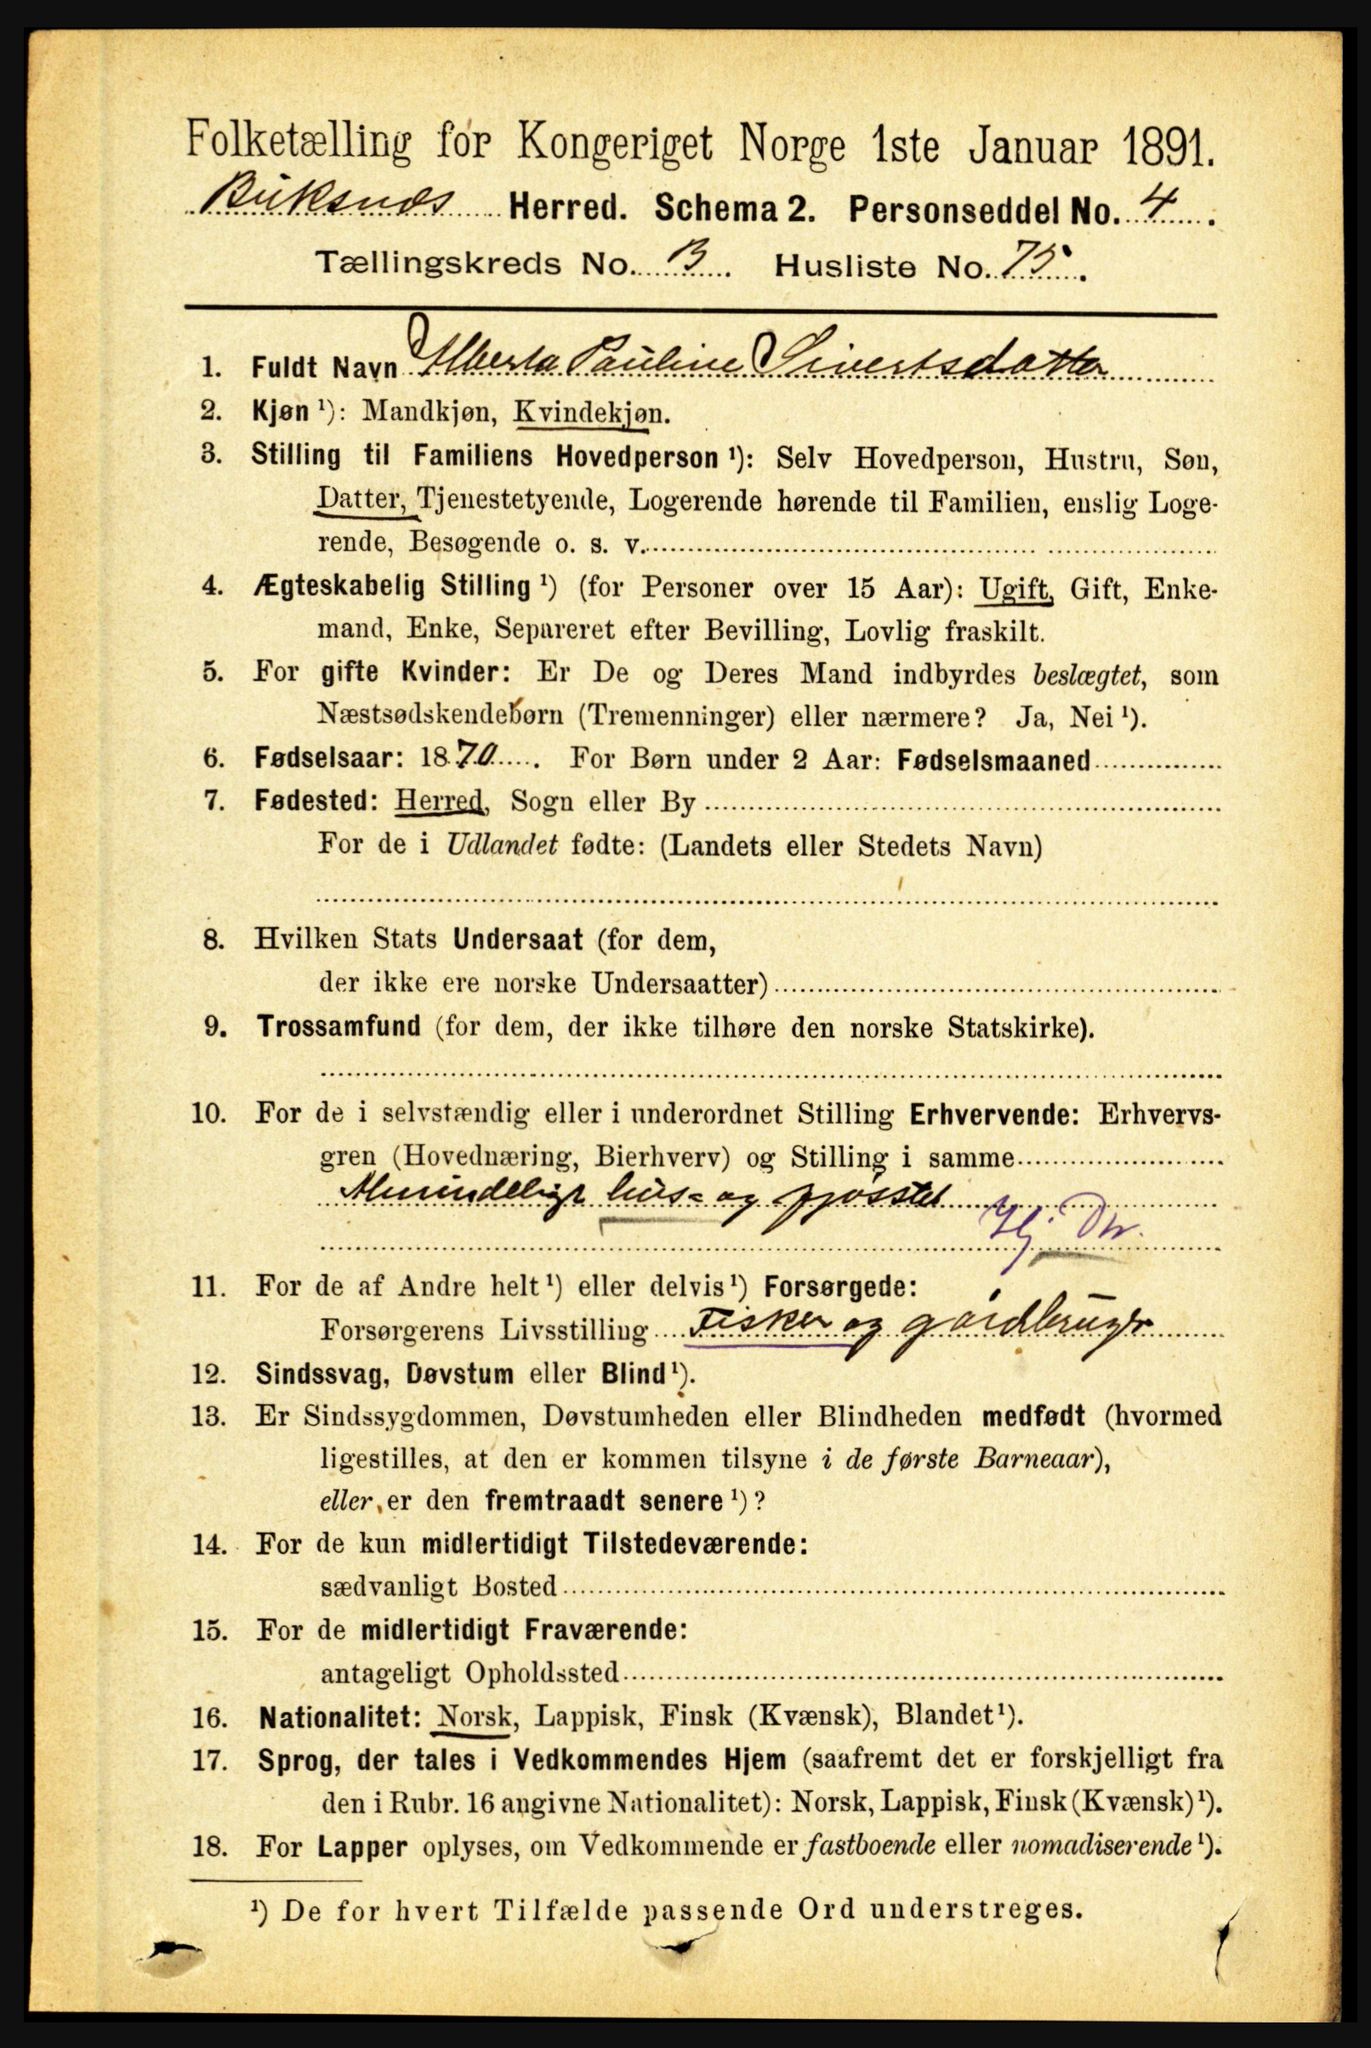 Folketælling for Kongeriget Norge 1ste Januar 1891.
Buksnes Herred. Schema 2. Personseddel No. 4.
Tællingskreds No. 13. Husliste No. 75.
1. Fuldt Navn Alberta Pauline Sivertsdatter
2. Kjøn ¹): Mandkjøn, Kvindekjøn.
3. Stilling til Familiens Hovedperson ¹): Selv Hovedperson, Hustru, Søn,
Datter, Tjenestetyende, Logerende hørende til Familien, enslig Loge-
rende, Besøgende o. s. v.
4. Ægteskabelig Stilling ¹) (for Personer over 15 Aar): Ugift, Gift, Enke-
mand, Enke, Separeret efter Bevilling, Lovlig fraskilt.
5. For gifte Kvinder: Er De og Deres Mand indbyrdes beslægtet, som
Næstsødskendebørn (Tremenninger) eller nærmere? Ja, Nei ¹).
6. Fødselsaar: 1870. For Børn under 2 Aar: Fødselsmaaned
7. Fødested: Herred, Sogn eller By
For de i Udlandet fødte: (Landets eller Stedets Navn)
8. Hvilken Stats Undersaat (for dem,
der ikke ere norske Undersaatter)
9. Trossamfund (for dem, der ikke tilhøre den norske Statskirke).
10. For de i selvstændig eller i underordnet Stilling Erhvervende: Erhvervs-
gren (Hovednæring, Bierhverv) og Stilling i samme
Almindeligt hus- og fjøsstel
Hj. Dtr.
11. For de af Andre helt ¹) eller delvis ¹) Forsørgede:
Forsørgerens Livsstilling Fisker og gårdbruger
12. Sindssvag, Døvstum eller Blind ¹).
13. Er Sindssygdommen, Døvstumheden eller Blindheden medfødt (hvormed
ligestilles, at den er kommen tilsyne i de første Barneaar),
eller er den fremtraadt senere ¹)?
14. For de kun midlertidigt Tilstedeværende:
sædvanligt Bosted
15. For de midlertidigt Fraværende:
antageligt Opholdssted
16. Nationalitet: Norsk, Lappisk, Finsk (Kvænsk), Blandet ¹).
17. Sprog, der tales i Vedkommendes Hjem (saafremt det er forskjelligt fra
den i Rubr. 16 angivne Nationalitet): Norsk, Lappisk, Finsk (Kvænsk) ¹).
18. For Lapper oplyses, om Vedkommende er fastboende eller nomadiserende ¹).
¹) De for hvert Tilfælde passende Ord understreges.